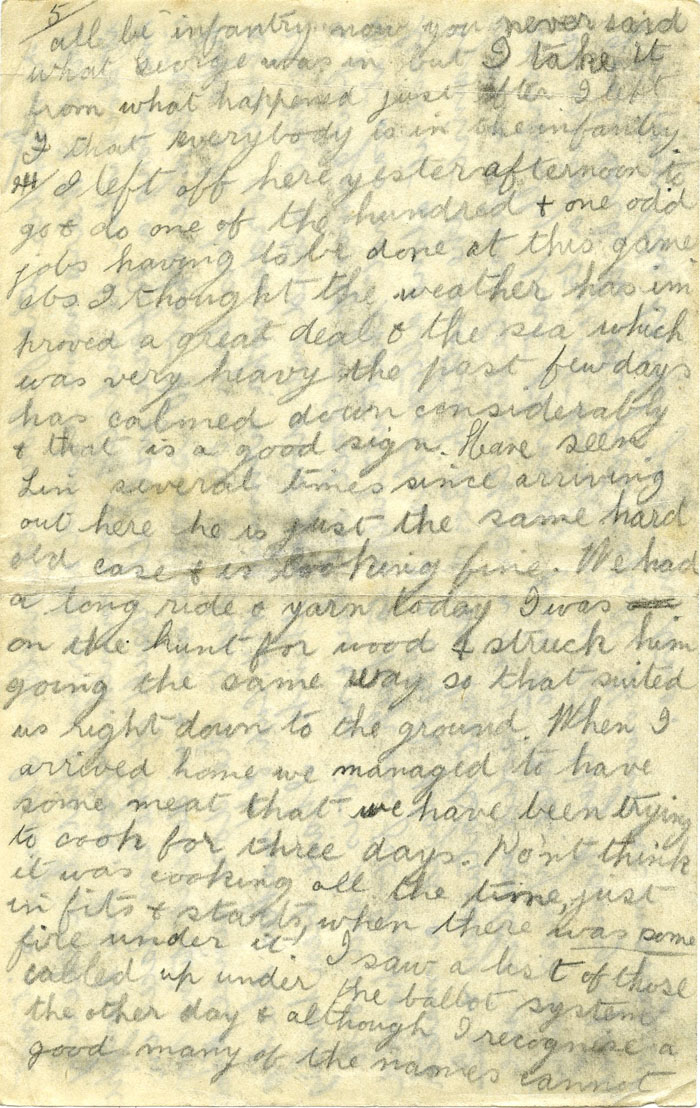 5/
all be infantry now you never said
what George was in but I take it
from what happened just after I left
that everybody is in the infantry.
I left off here yester afternoon to
go & do one of the hundred & one odd
jobs having to be done at this game
as I thought the weather has im
proved a great deal & the sea which
was very heavy the past few days
has calmed down considerably
& that is a good sign. Have seen
Lin several times since arriving
out here he is just the same hard
old case & is looking fine. We had
a long ride & yarn today I was
on the hunt for wood & struck him
going the same way so that suited
us right down to the ground. When I
arrived home we managed to have
some meat that we have been trying
to cook for three days. Don't think
it was cooking all the time, just
in fits & starts, when there was some
fire under it. I saw a list of those
called up under the ballot system
the other day & although I recognise a
good many of the names cannot